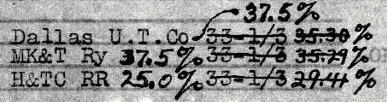 37.5%
Dallas U.T.Co 33-1/3 35.30%
MK&T Ry 37.5% 33-1/3 35.29%
H&TC RR 25.0% 33-1/3 29.41%